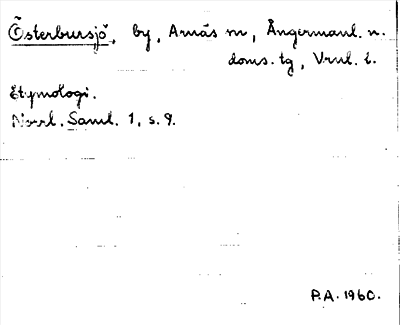 Österbursjö, by, Arnäs sn, Ångermanl. n.
doms. tg, Vrnl. l.
Etymologi.
Norrl. Saml. 1, s. 9.
P.A. 1960.